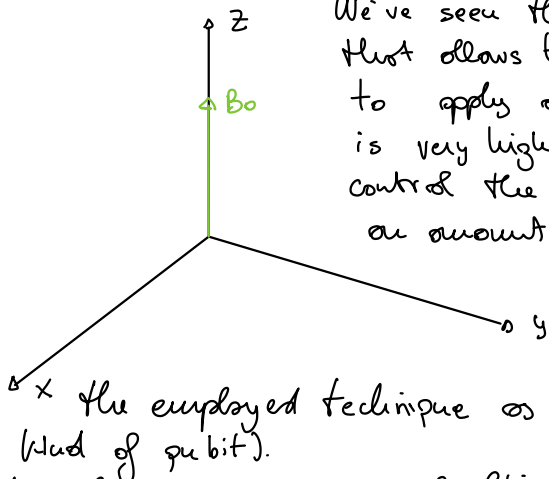 z
We've seen th
B0
that allows t
to apply a
is very high
control the
an amount
y
x
the employed technique as
kind of qubit).